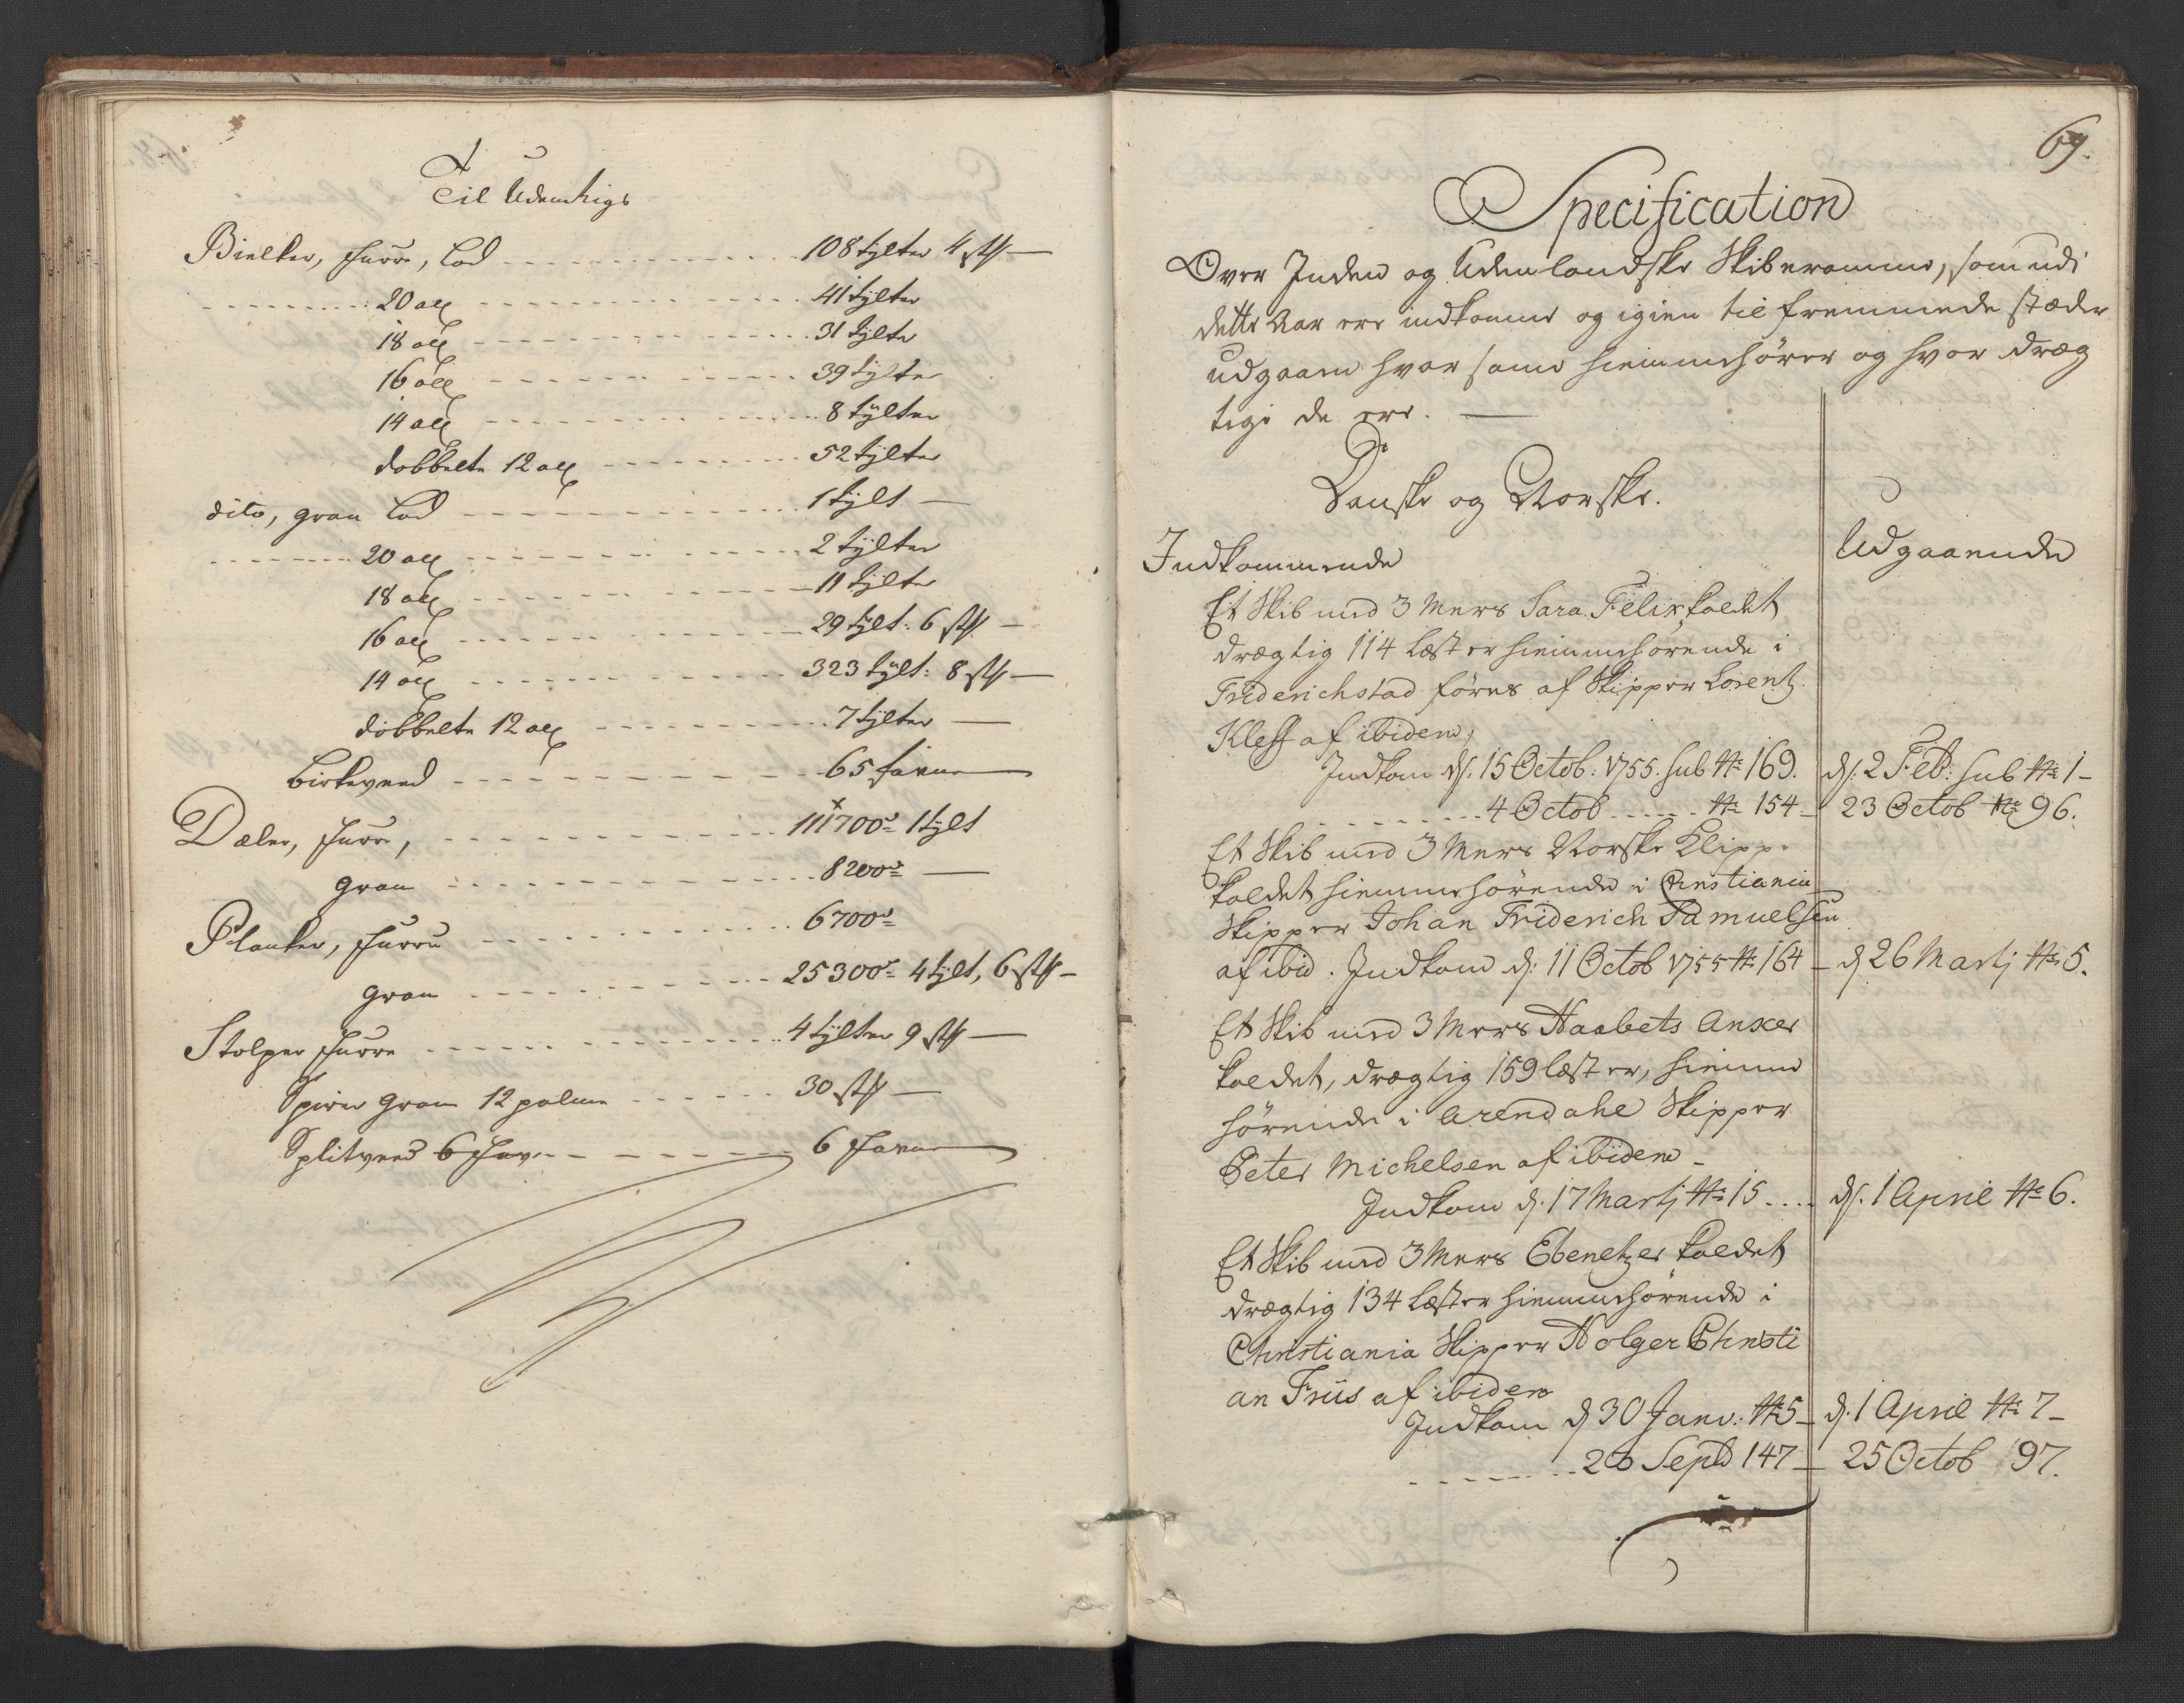 Til Udenrigs
Bielker, furre, Lod - - - 108 tylter 4 st
- - - 20 all - - - 41 tylter
18 all - - - 31 tylter
16 all - - - 39 tylter
14 all - - - 8 tylter
dobbelte 12 all - - - 52 tylter
dito, gran Lod - - - 1 tylt
- - - 20 all - - - 2 tylter
18 all - - - 11 tylter
16 all - - - 29 tylt: 6 st
14 all - - - 323 tylt: 8 st
dobbelte 12 all - - - 7 tylter
Birkeveed - - - 65 favne
Dæler, furre, - - - 111700 1 tylt
gran - - - 8200
Planker, furre - - - 6700
gran - - - 25300 4 tylt, 6 st
Stolper furre - - - 4 tylter 9 st
Spirer gran 12 palme - - - 30 st
Splitveed 6 fav - - - 6 favne
69.
Specification
Over Inden og Udenlandske Skiberomme, som udi
dette Aar ere indkomne og igien til fremmede stæder
udgaaen hvor samme hiemmehører og hvor dræg
tige de ere.
Danske og Norske.
Indkommende
Udgaaende
Et Skib med 3 Mers Sara Felix, kaldet
drægtig 114 Læster hiemmehørende i
Friderichstad føres af Skipper Lorentz
Kleff af ibidem,
Indkom d. 15 Octob: 1755. sub No 169. d. 2 Feb: sub No 1 -
- - - 4 Octob - - - No 154 - 23 Octob No 96.
Et Skib med 3 Mers Norske Klipp.
kaldet hiemmehørende i Christiania
Skipper Johan Friderich Samuelsen
af ibid. Indkom d: 11 Octob 1755 No 164 - d 26 Martj No 5.
Et Skib med 3 Mers Haabets Anker
kaldet, drægtig 159 læster, hiemme
hørende i Arendahl Skipper
Peter Michelsen af ibidem -
Indkom d. 17 Martj No 15 .... d. 1 April No 6.
Et Skib med 3 Mers Ebenetzer kaldet
drægtig 134 Læster hiemmehørende i
Christiania Skipper Holger Christi
an Friis af ibidem
Indkom d 30 Janv: No 5 - d. 1 April No 7 -
- - - 26 Septb 147 - 25 Octob 97.